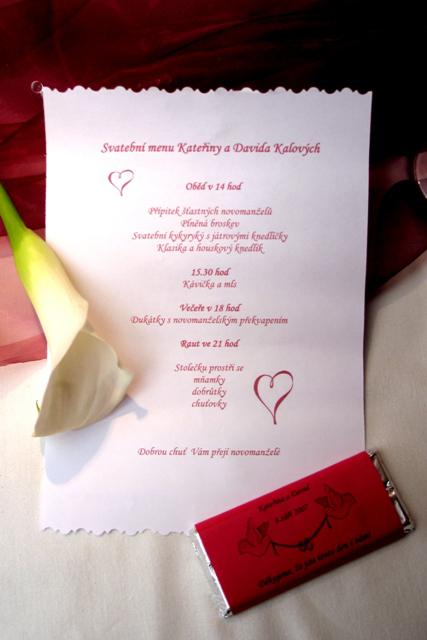 Svatební menu Kateřiny a Davida Kalových
Oběd v 14 hod
Přípitek šťastných novomanželů
Plněná broskev
Svatební kykyryký s játrovými knedlíčky
Klasika a houskový knedlík
15.30 hod
Kávička a mls
Večeře v 18 hod
Dukátky s novomanželským překvapením
Raut ve 21 hod
Stolečku prostři se
mňamky
dobrůtky
chuťovky
Dobrou chuť Vám přejí novomanželé
Kateřina a David
září 2007
Děkujeme, že jste tento den s námi